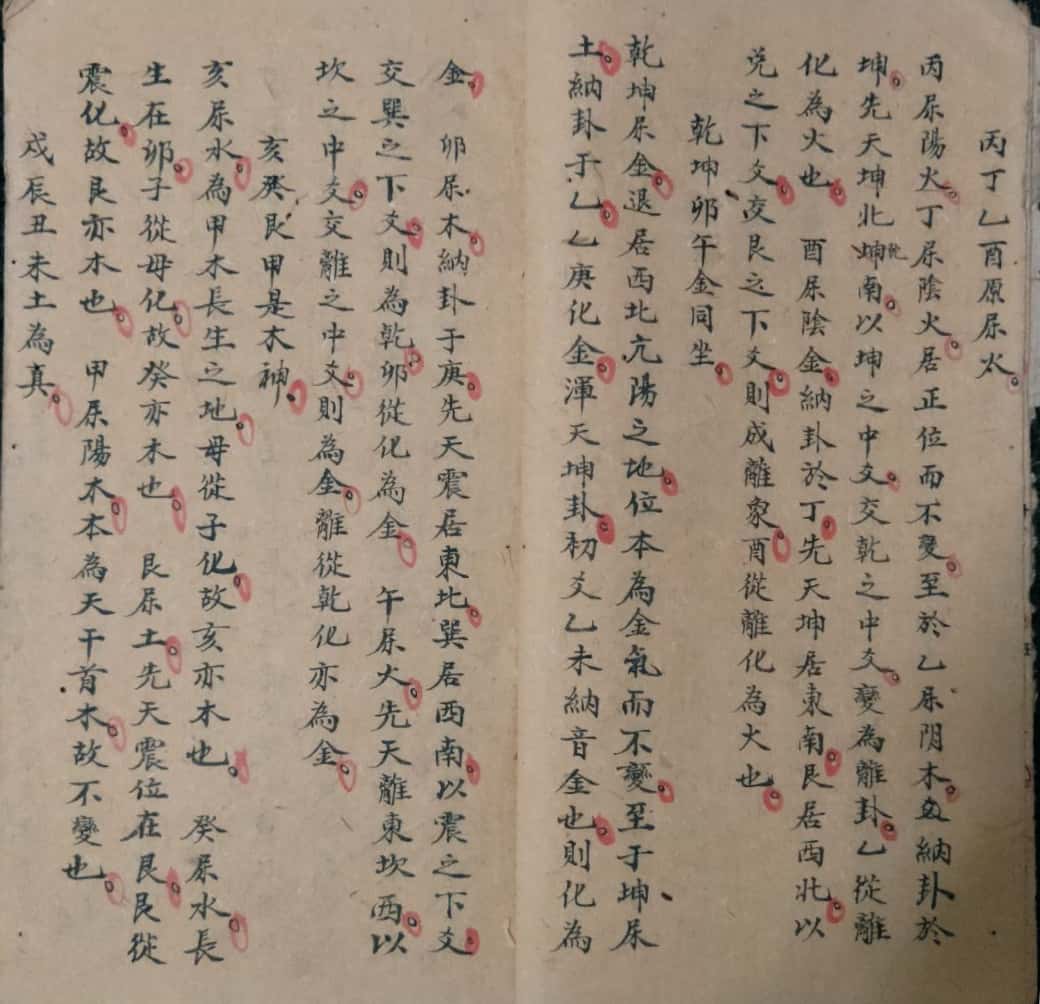 丙丁乙酉原屬火。
丙屬陽火。丁屬陰火。居正位而不變。至於乙屬阴木。納卦於
坤。先天坤北坤乾南。以坤之中爻。交乾之中爻。變為離卦。乙從離
化為火也。 酉屬陰金。納卦於丁。先天坤居東南。艮居西北。以
兌之下爻。交艮之下爻。則成離象。酉從離化為火也。
乾坤卯午金同坐。
乾坤屬金。退居西北亢陽之地。位本為金氣而不變。至于坤屬
土。納卦于乙。乙庚化金。渾天坤卦。初爻乙未納音金也。則化為
金。 卯屬木。納卦于庚。先天震居東北。巽居西南。以震之下爻。
交巽之下爻。則為乾。卯從化為金。 午屬火。先天離東坎西。以
坎之中爻。交離之中爻。則為金。離從乾化亦為金。
亥癸艮甲是木神。
亥屬水。為甲木長生之地。母從子化。故亥亦木也。 癸屬水。長
生在卯。子從母化。故癸亦木也。 艮屬土。先天震位在艮。艮從
震化。故艮亦木也。 甲屬陽木。本為天干首木。故不變也。
戌辰丑未土為真。